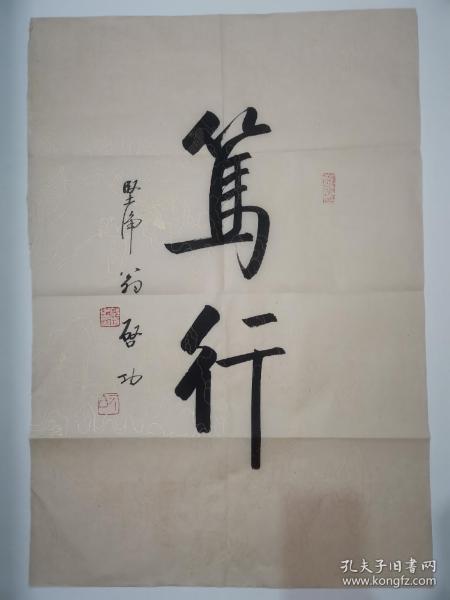 篤行
堅净翁
啓功
孔夫子旧书网
www.kongfz.com